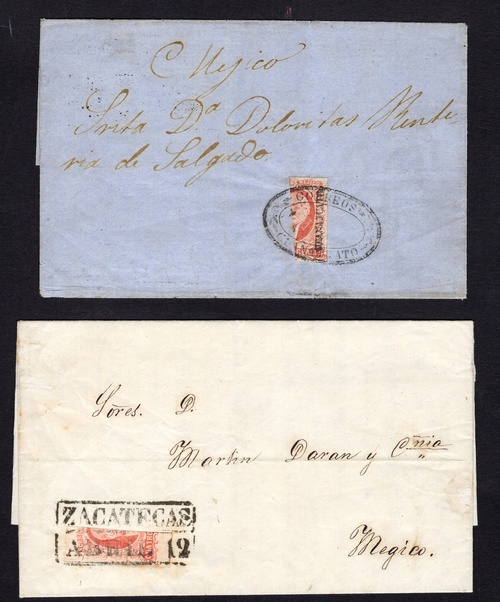 Mejico
Srita Dª Doloritas Rente-
ria de Salgado
CORREOS
GUANAJUATO
Sores. D.
Martin Daran y Cnia
Megico.
ZACATECAS
ABRIL 12